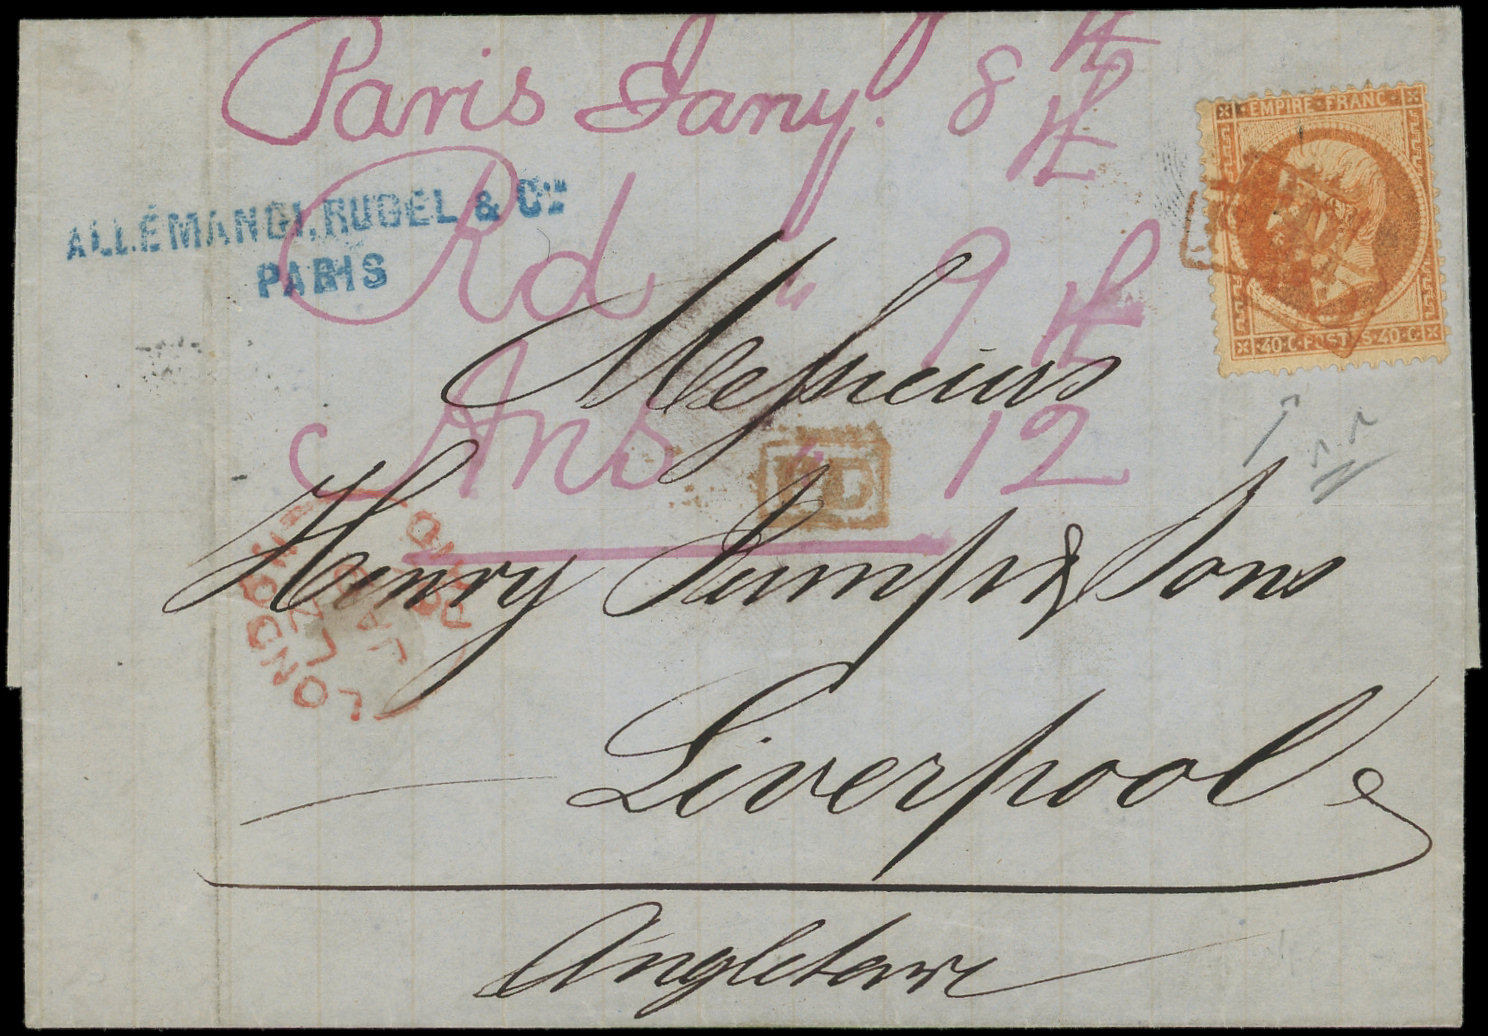 Paris Jany. 8
EMPIRE·FRANC·
ALLÉMANDI, RUGEL & Cie
PARIS
Rd " 9
40·C·POSTES·40·C
Messieurs
Ans " 12
PD
Henry Jump & Sons
LONDON
PAID
Liverpool
Angleterre